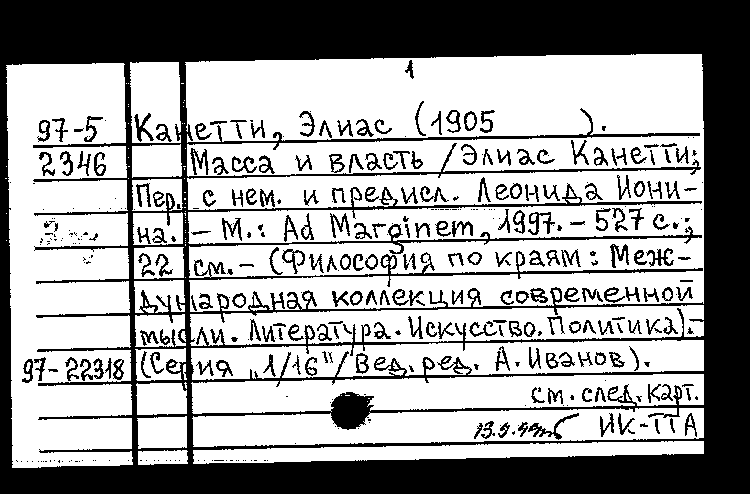 1
97-5 Канетти, Элиас (1905 ).
2346 Масса и власть /Элиас Канетти;
Пер. с нем. и предисл. Леонида Иони-
на. – М.: Ad Marginem, 1997. – 527 с.;
22 см. – (Философия по краям: Меж-
дународная коллекция современной
мысли. Литература. Искусство. Политика). –
97-22318 (Серия „1/16“/Вед. ред. А. Иванов).
см. след. карт.
ИК-ТТА